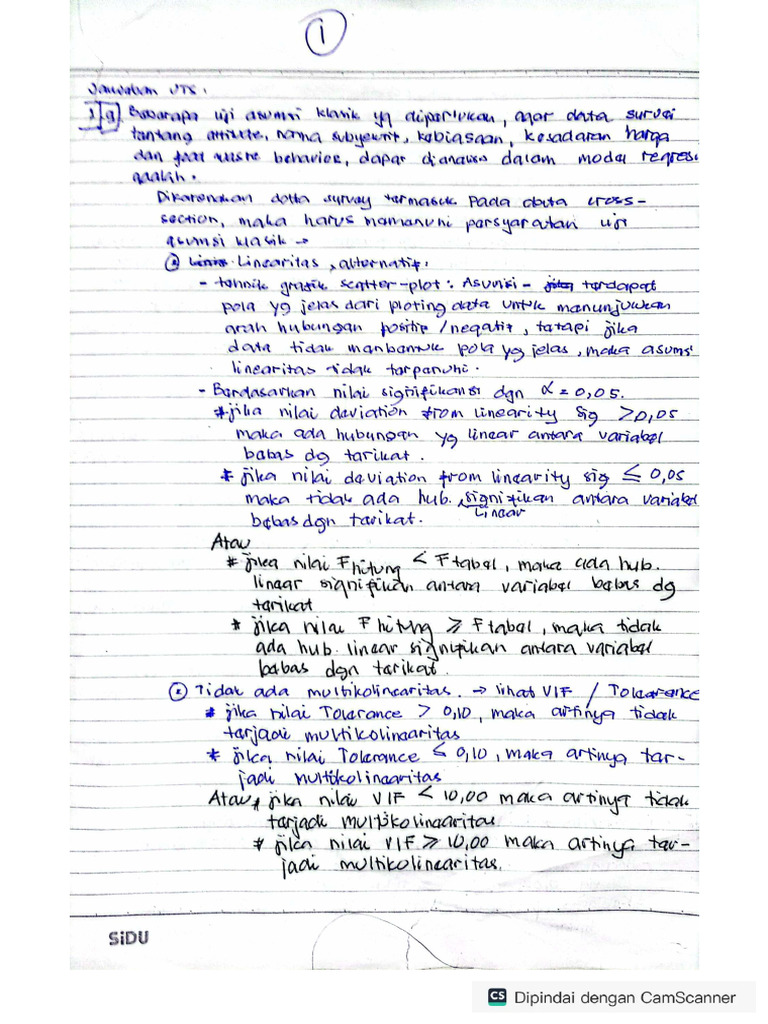 1
Jawaban UTS :
1 a) Beberapa uji asumsi klasik yg diperlukan, agar data survei
tentang attitude, norma subyektif, kebiasaan, kesadaran harga
dan food waste behavior, dapat dianalisis dalam model regresi
adalah :
Dikarenakan data survey termasuk pada data cross-
section, maka harus memenuhi persyaratan uji
asumsi klasik →
① Linearitas, alternatif :
- tehnik grafik scatter-plot : Asumsi - terdapat
pola yg jelas dari ploting data untuk menunjukkan
arah hubungan positip/negatif, tetapi jika
data tidak membentuk pola yg jelas, maka asumsi
linearitas tidak terpenuhi.
- Berdasarkan nilai signifikansi dgn α = 0,05.
* jika nilai deviation from linearity sig > 0,05
maka ada hubungan yg linear antara variabel
bebas dg terikat.
* jika nilai deviation from linearity sig ≤ 0,05
maka tidak ada hub. linear signifikan antara variabel
bebas dgn terikat.
Atau
* jika nilai F hitung < F tabel, maka ada hub.
linear signifikan antara variabel bebas dg
terikat
* jika nilai F hitung ≥ F tabel, maka tidak
ada hub. linear signifikan antara variabel
bebas dgn terikat.
② Tidak ada multikolinearitas. → lihat VIF / Tolearance
* jika nilai Tolerance > 0,10, maka artinya tidak
terjadi multikolinearitas
* jika nilai Tolerance ≤ 0,10, maka artinya ter-
jadi multikolinearitas
Atau * jika nilai VIF < 10,00 maka artinya tidak
terjadi multikolinearitas
* jika nilai VIF ≥ 10,00 maka artinya ter-
jadi multikolinearitas.
SiDU
CS Dipindai dengan CamScanner